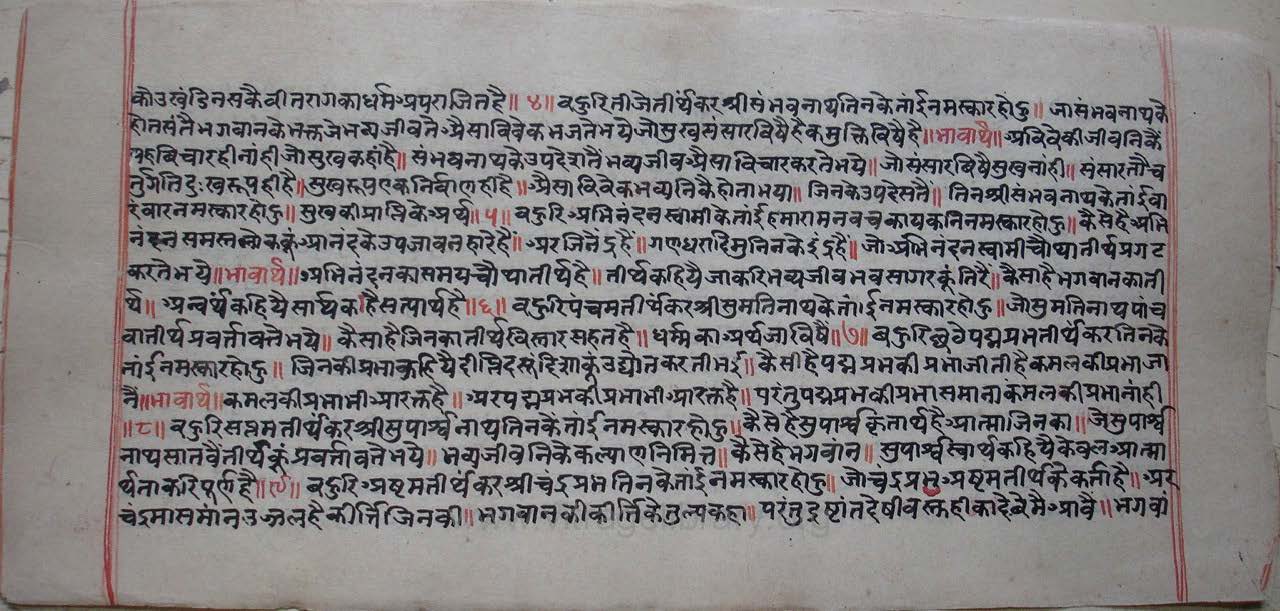 कोउ खंडि न सकै वीतरागका धर्म अपराजित है॥४॥ बहुरि तीजे तीर्थंकर श्री संभवनाथ तिनकेतांई नमस्कार होहु॥ जा संभवनाथकै
होतसंतै भगवानके भक्त जे भव्यजीव ते असा विवेक भजते भये जो सुख संसारविषै है क मुक्तिविषै है॥ भावार्थ॥ अविवेकी जीवनिकैं
यह विचार ही नांही जो सुख कहां है॥ संभवनाथके उपदेशतैं भव्यजीव असा विचार करते भये॥ जो संसारविषै सुख नांही॥ संसार तौ च
तुर्गति दुःखरूप ही है॥ सुखरूप एक निर्वाण ही है॥ असा विवेक भव्यनिकै होता भया॥ जिनके उपदेसतै॥ तिन श्री संभवनाथकेतांई वा
रंवार नमस्कार होहु॥ सुखकी प्राप्तिके अर्थ॥५॥ बहुरि अभिनंदनस्वामीकेतांई हमारा मनवचकायकरि नमस्कार होहु॥ कैसे है अभि
नंदन समस्त लोककूं आनंदके उपजावनहारे हैं॥ अर जिनेंद्र हैं॥ गणधरादि मुनिनके इंद्र हैं॥ जो अभिनंदनस्वामी चौथा तीर्थ प्रगट
करते भये॥ भावार्थ॥ अभिनंदनका समय चौथा तीर्थ है॥ तीर्थ कहियै जाकरि भव्यजीव भवसागरकूं तिरै॥ कैसा है भगवानका ती
र्थ॥ अन्वर्थ कहियै सार्थक है सत्यार्थ है॥६॥ बहुरि पंचम तीर्थंकर श्री सुमतिनाथकेतांई नमस्कार होहु॥ जो सुमतिनाथ पांच
वा तीर्थ प्रवर्त्तावते भये॥ कैसा है जिनका तीर्थ विस्तारसहत है॥ धर्म्मका अर्थ जाविषैं॥७॥ बहुरि छठे पद्मप्रभ तीर्थंकर तिनके
तांई नमस्कार होहु॥ जिनकी प्रभा कहियै दीप्ति दसूंदिशाकूं उद्योत करती भई॥ कैसी है पद्मप्रभकी प्रभा जीती है कमलकी प्रभा जा
नैं॥ भावार्थ॥ कमलकी प्रभा भी आरक्त है॥ अर पद्मप्रभकी प्रभा भी आरक्त है॥ परंतु पद्मप्रभकी प्रभा समान कमलकी प्रभा नांही
॥८॥ बहुरि सप्तम तीर्थंकर श्री सुपार्श्वनाथ तिनकेंतांई नमस्कार होहु॥ कैसे है सुपार्श्व कृतार्थ है आत्मा जिनका॥ जे सुपार्श्व
नाथ सातवैं तीर्थकूं प्रवर्त्तावते भये॥ भव्यजीवनिके कल्याणनिमित्त॥ कैसे है भगवांन॥ सुपार्श्व स्वार्थ कहियै केवल आत्मा
र्थताकरि पूर्ण है॥९॥ बहुरि अष्टम तीर्थंकर श्री चंद्रप्रभ तिनकेतांई नमस्कार होहु॥ जो चंद्रप्रभु अष्टम तीर्थके कर्ता है॥ अर
चंद्रमासमांन उज्जल है कीर्त्ति जिनकी॥ भगवानकी कीर्त्तिके तुल्य कहा॥ परंतु दृष्टांत देषी वस्तूहीका देबेमै आवै॥ भगवां